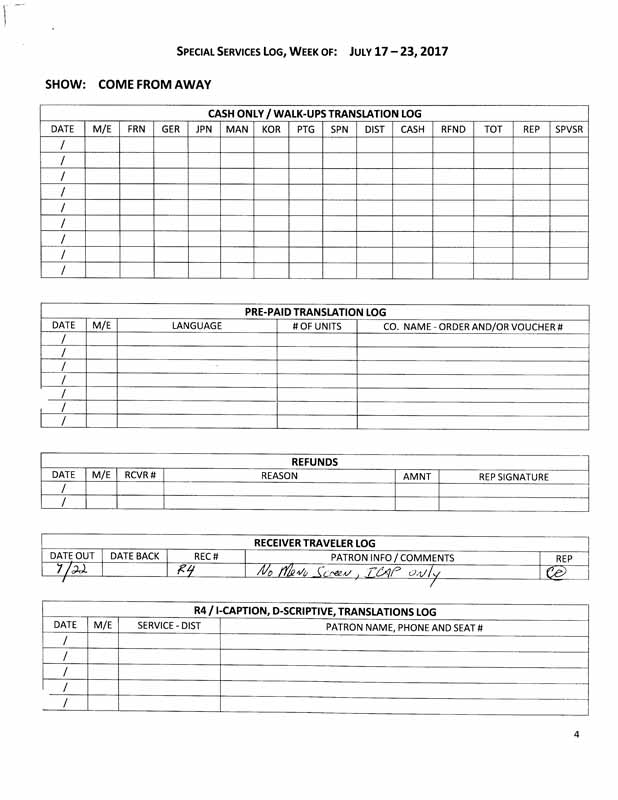 SPECIAL SERVICES LOG, WEEK OF: JULY 17 – 23, 2017
SHOW: COME FROM AWAY
CASH ONLY / WALK-UPS TRANSLATION LOG
DATE M/E FRN GER JPN MAN KOR PTG SPN DIST CASH RFND TOT REP SPVSR
/
/
/
/
/
/
/
/
/
PRE-PAID TRANSLATION LOG
DATE M/E LANGUAGE # OF UNITS CO. NAME - ORDER AND/OR VOUCHER #
/
/
/
/
/
/
/
REFUNDS
DATE M/E RCVR # REASON AMNT REP SIGNATURE
/
/
RECEIVER TRAVELER LOG
DATE OUT DATE BACK REC # PATRON INFO / COMMENTS REP
7/22 R4 No Menu Screen, ICAP only CE
R4 / I-CAPTION, D-SCRIPTIVE, TRANSLATIONS LOG
DATE M/E SERVICE - DIST PATRON NAME, PHONE AND SEAT #
/
/
/
/
/
4